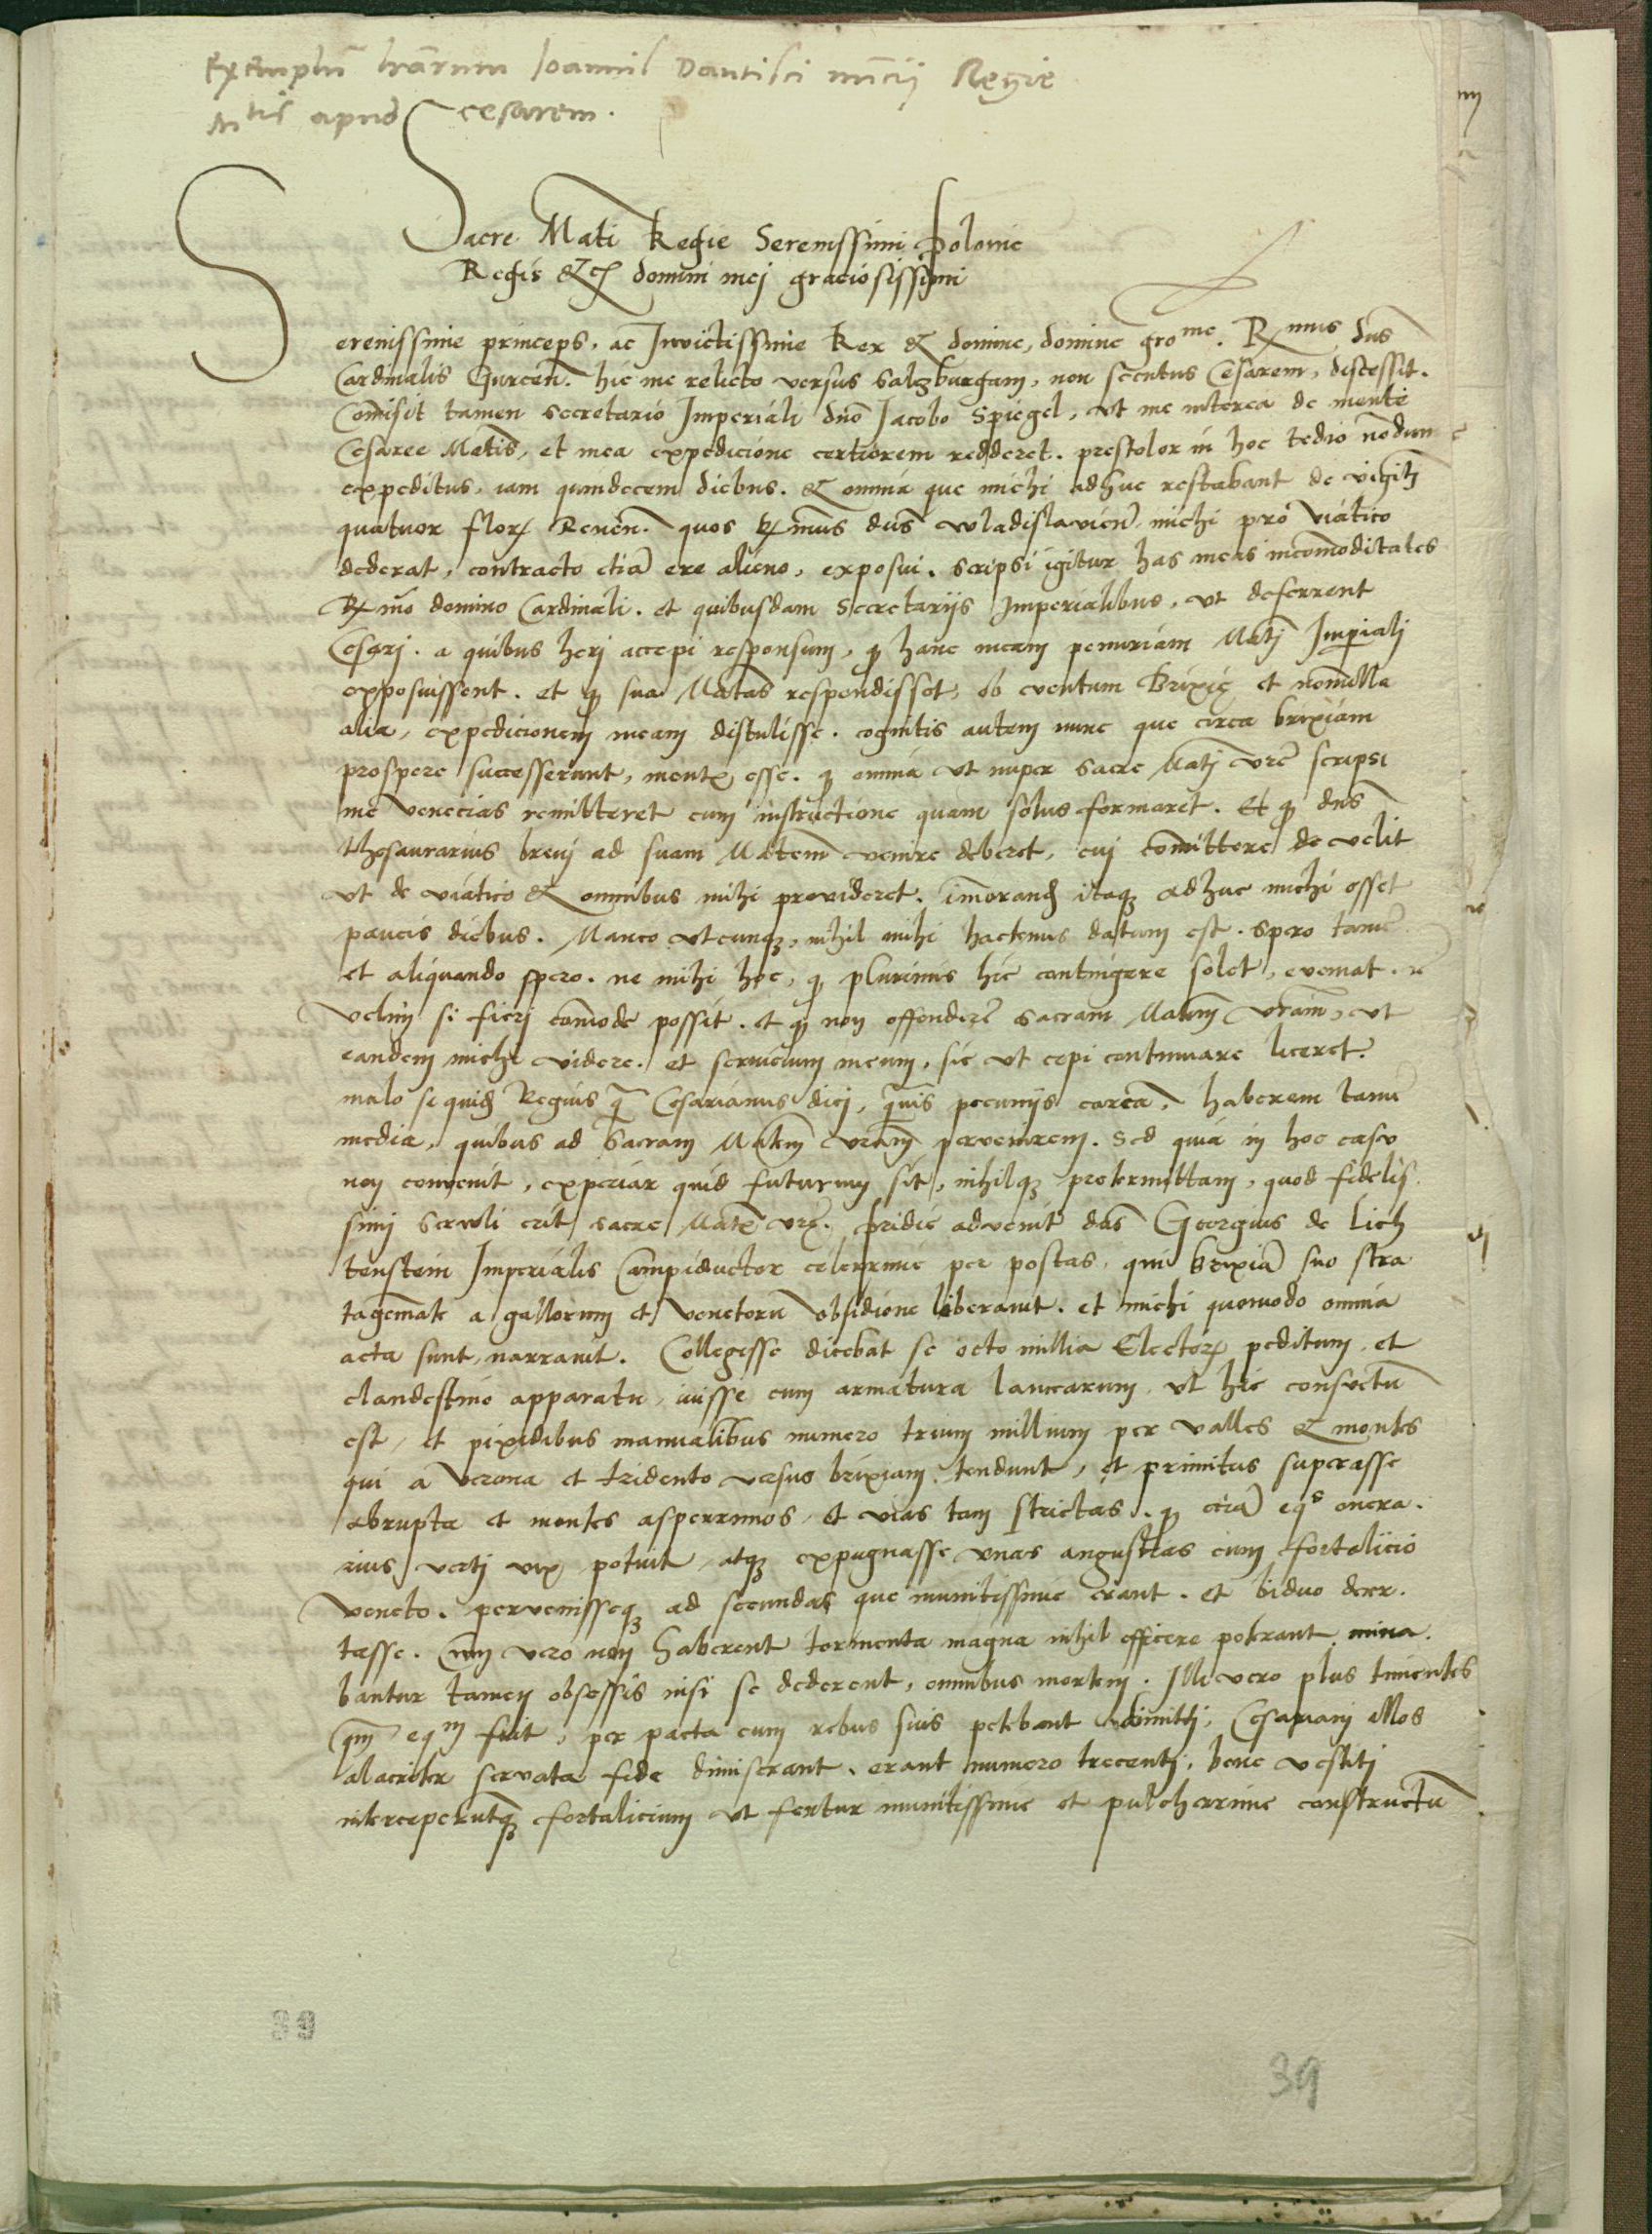 Exemplum lrarum Ioannis Dantisci nuncij Regie
Mtis apud cesarem.
Sacre Mati Regie Serenissimi Polonie
Regis &c domini mej graciosissimi
Serenissime princeps, ac Invictissime Rex & domine, domine grome. Rmus dns
Cardinalis Gurcen. hic me relicto versus Salczburgam, non secutus Cesarem, discessit.
Comisit tamen secretario Imperiali dno Jacobo Spiegel, ut me interea de mente
Cesaree Matis, et mea expedicione certiorem redderet. prestolor in hoc tedio nodum
expeditus, iam quindecem diebus. & omnia que michi adhuc restabant de viginti
quatuor flor Renen. quos Rmus dns wladislavien michi pro viatico
dederat, contracto etia ere alieno, exposui. scripsi igitur has meas incomoditates
Rmo domino Cardinali. et quibusdam Secretarijs Imperialibus, ut deferrent
Cesarj. a quibus herj accepi responsum, q hanc meam penuriam Matj Imperialj
exposuissent. et q sua Matas respondisset, ob eventum Brixię et nonnulla
alia, expedicionem meam distulisse. cognitis autem nunc que circa brixiam
prospere successerunt, mentis esse. q omnia ut nuper Sacre Matj vre scripsi
me venecias remitteret cum instructione quam solus formaret. Et q dns
thesaurarius brevj ad suam Matem venire deberet, cuj comittere de velit
ut de viatico & omnibus mihi provideret. imorand itaq adhuc michi esset
paucis diebus. Maneo utcunq, nihil mihi hactenus datum est. spero tame
et aliquando spero. ne mihi hoc, q plurimis hic contingere solet, eveniat.
Velim si fierj comode possit. et q non offendere sacram Matem vram, ut
eandem michi videre. et servicium meum, sic ut cepi continuare liceret.
malo siquid Regius q Cesarianus dicj, qvis pecunijs carea. haberem tame
media, quibus ad Sacram Matem vram pervenirem. Sed quia in hoc casu
non convenit, experiar quid futurum sit, nihilq pretermittam, quod fidelis
simj servoli erit sacre Matis vre. Pridie advenit dns Georgius de Lich
tenstein Imperialis Campiductor celerrime per postas, qui brixia suo stra
tagemate a gallorum et venetoru obsidione liberavit. et michi quomodo omnia
acta sunt, narravit. Collegisse dicebat se octo millia Elector peditum, et
clandestino apparatu, iuisse cum armatura lancearum, ut hic consuetu
est, et pixidibus manualibus numero trium millium per valles & montes
qui a Verona et tridento versus brixiam tendunt, et primitus superasse
abrupta et montes asperrimos, et vias tam strictas. q etia eqs onera
rius vertj vix potuit, atq expugnasse unas angustias cum fortalicio
veneto. pervenisseq ad secundas que munitissime erant. et biduo decer
tasse. Cum vero non haberent tormenta magna nihil efficere poterant, mina
bantur tamen obsessis nisi se dederent, omnibus mortem. Illi vero plus timentes
qm eqm fuit, per pacta cum rebus suis petebant dimittj, Cesarianj illos
alacriter servata fide dimiserant, erant numero trecentj, bene vestitj
interceperutq fortalicium ut fertur munitissime et pulcherrime constructu
39
39